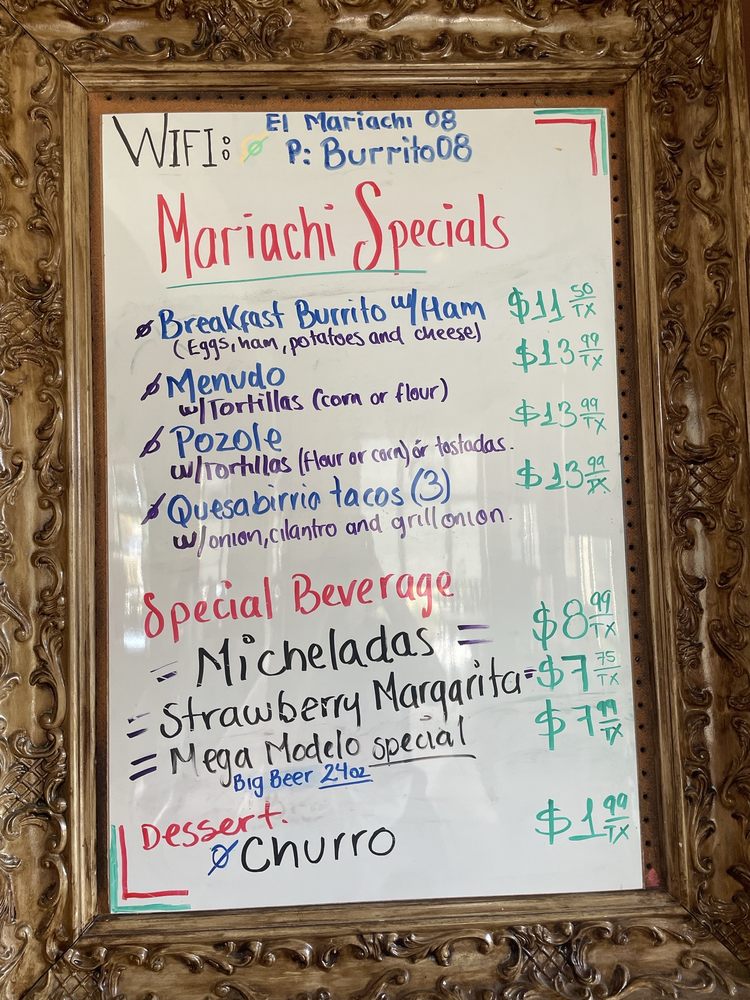 WIFI: El Mariachi 08
P: Burrito08
Mariachi Specials
Breakfast Burrito w/Ham $11 50/TX
(Eggs, ham, potatoes and cheese)
Menudo $13 99/TX
w/Tortillas (corn or flour)
Pozole $13 99/TX
w/Tortillas (flour or corn) ór tostadas.
Quesabirria tacos (3) $13 99/TX
w/onion, cilantro and grill onion.
Special Beverage
= Micheladas = $8 99/TX
= Strawberry Margarita = $7 75/TX
= Mega Modelo special $7 99/TX
Big Beer 24oz
Dessert.
Churro $1 99/TX